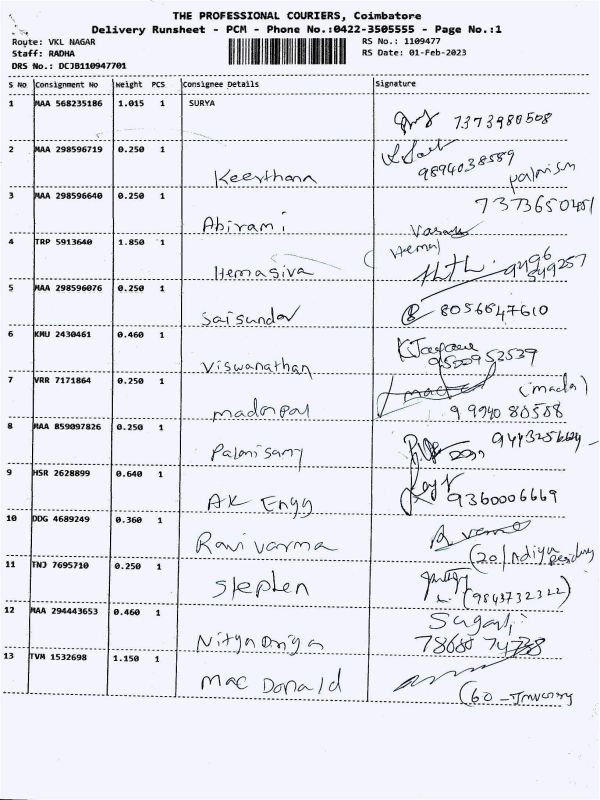 THE PROFESSIONAL COURIERS, Coimbatore
Delivery Runsheet - PCM - Phone No.:0422-3505555 - Page No.:1
Route: VKL NAGAR
Staff: RADHA
DRS No.: DCJB110947701
RS No.: 1109477
RS Date: 01-Feb-2023
S No Consignment No Weight PCS Consignee Details Signature
1 MAA 568235186 1.015 1 SURYA 7373980508
2 MAA 298596719 0.250 1 Keerthana 9894038589
3 MAA 298596640 0.250 1 Abirami 7373650451
4 TRP 5913640 1.850 1 Hemasiva
5 MAA 298596076 0.250 1 Saisundar 8056647610
6 KMU 2430461 0.460 1 Viswanathan 9500952539
7 VRR 7171864 0.250 1 madanpal 9994080508
8 MAA 859097826 0.250 1 Palanisamy
9 HSR 2628899 0.640 1 AK Engg 9360006669
10 DDG 4689249 0.360 1 Ravi varma
11 TNJ 7695710 0.250 1 Stephen (9843732322)
12 MAA 294443653 0.460 1 Nityapriya
13 TVM 1532698 1.150 1 Mac Donald